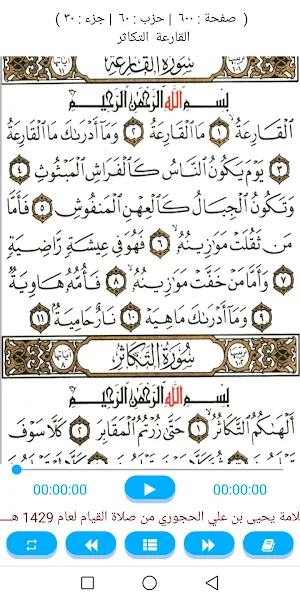 ( صفحة : ٦٠٠ | حزب : ٦٠ | جزء : ٣٠ )
القارعة التكاثر
سُورَةُ القَارِعَةِ
بِسْمِ اللَّهِ الرَّحْمَٰنِ الرَّحِيمِ
الْقَارِعَةُ ١ مَا الْقَارِعَةُ ٢ وَمَا أَدْرَىٰكَ مَا الْقَارِعَةُ
٣ يَوْمَ يَكُونُ النَّاسُ كَالْفَرَاشِ الْمَبْثُوثِ ٤
وَتَكُونُ الْجِبَالُ كَالْعِهْنِ الْمَنفُوشِ ٥ فَأَمَّا
مَن ثَقُلَتْ مَوَٰزِينُهُ ٦ فَهُوَ فِي عِيشَةٍ رَّاضِيَةٍ
٧ وَأَمَّا مَنْ خَفَّتْ مَوَٰزِينُهُ ٨ فَأُمُّهُ هَاوِيَةٌ
٩ وَمَا أَدْرَىٰكَ مَا هِيَهْ ١٠ نَارٌ حَامِيَةٌ ١١
سُورَةُ التَّكَاثُرِ
بِسْمِ اللَّهِ الرَّحْمَٰنِ الرَّحِيمِ
أَلْهَىٰكُمُ التَّكَاثُرُ ١ حَتَّىٰ زُرْتُمُ الْمَقَابِرَ ٢ كَلَّا سَوْفَ
00:00:00 00:00:00
لامة يحيى بن علي الحجوري من صلاة القيام لعام 1429 هـ